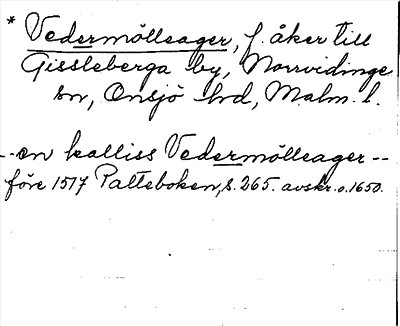 * Vedermölleager, f. åker till
Gissleberga by, Norrvidinge
sn, Onsjö hd, Malm. l.
-- en kalliss Vedermölleager --
före 1517 Palteboken, s. 265. avskr. o. 1650.